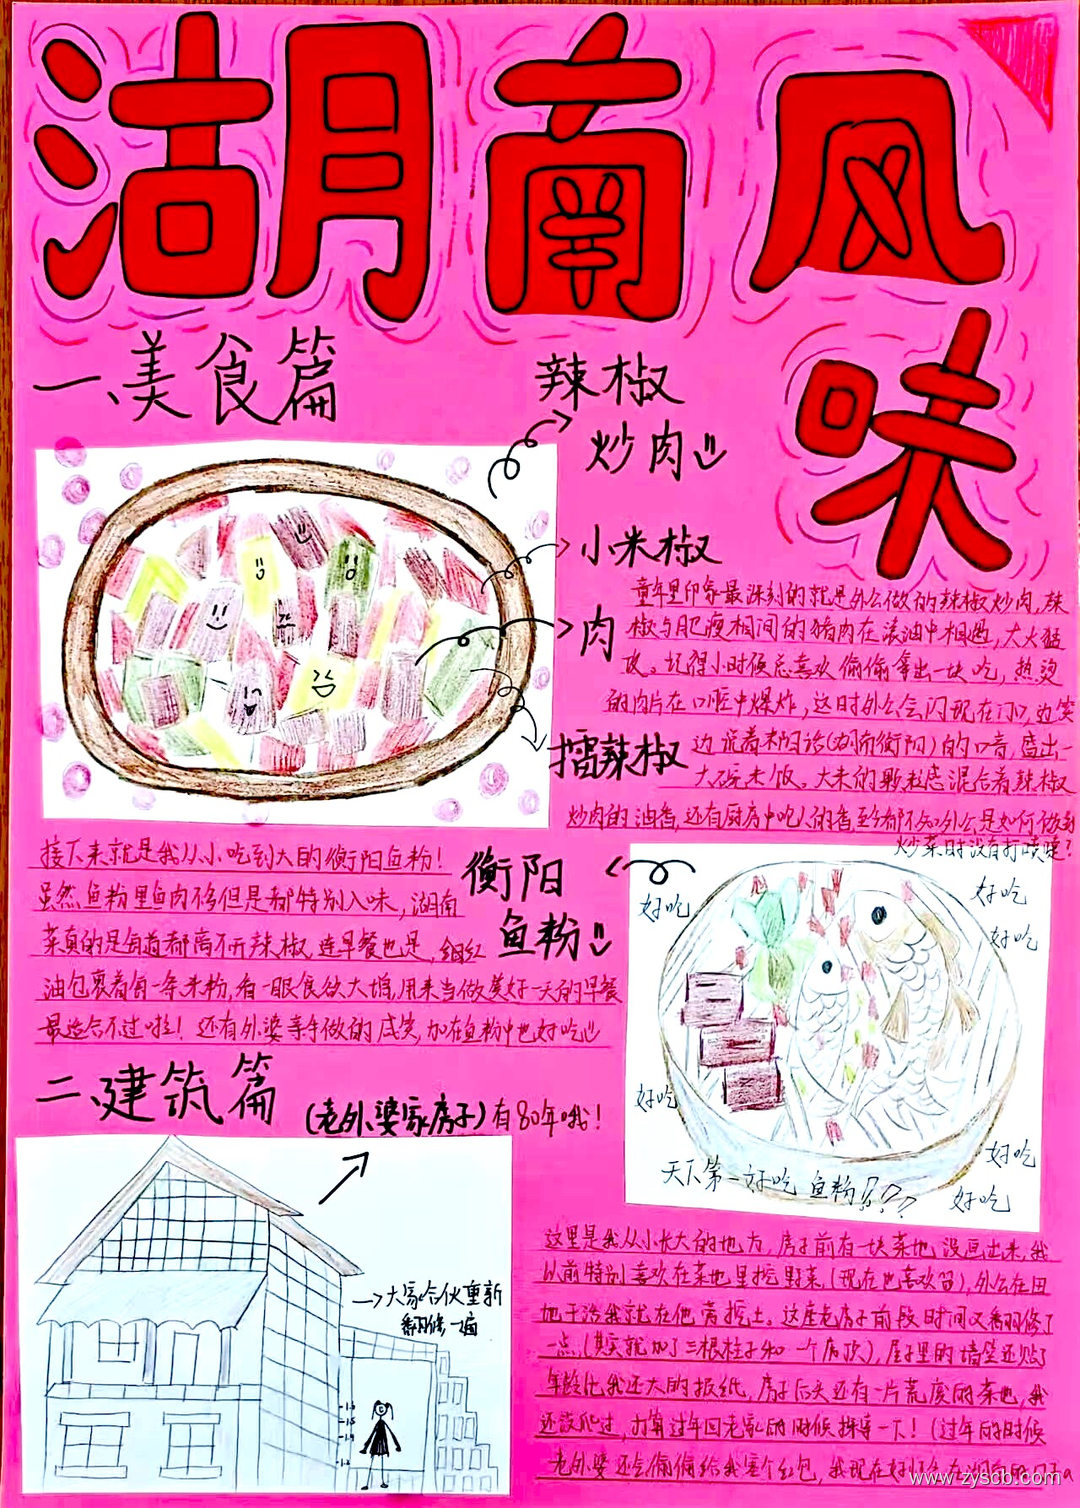 湖南风
味
一、美食篇
辣椒
炒肉
小米椒
肉
擂辣椒
童年里印象最深刻的就是外公做的辣椒炒肉,辣
椒与肥瘦相间的猪肉在滚油中相遇,大火猛
攻。记得小时候总喜欢偷偷拿出一块吃,热烫
的肉片在口腔中爆炸,这时外公会闪现在门口,边笑
边说着耒阳话(湖南衡阳)的口音,盛出一
大碗米饭。大米的颗粒感混合着辣椒
炒肉的油香,还有厨房中呛人的香,至今都不知外公是如何做到
炒菜时没有打喷嚏?
接下来就是我从小吃到大的衡阳鱼粉!
虽然鱼粉里鱼肉不多但是都特别入味,湖南
菜真的是每道都离不开辣椒,连早餐也是,细红
油包裹着每一条米粉,看一眼食欲大增,用来当做美好一天的早餐
最适合不过啦!还有外婆亲手做的,加在鱼粉中也好吃
衡阳
鱼粉
好吃
好吃
好吃
好吃
好吃
好吃
天下第一好吃鱼粉!???
二、建筑篇
(老外婆家房子)有80年哦!
大家合伙重新
翻修一遍
这里是我从小长大的地方,房子前有一块菜地,没画出来,我
以前特别喜欢在菜地里挖野菜,(现在也喜欢),外公在田
地干活我就在他旁挖土。这座老房子前段时间又翻修了
一点,(其实就加了三根柱子和一个房顶),屋子里的墙壁还贴了
年龄比我还大的报纸,房子后头还有一片荒废的菜地,我
还没爬过,打算过年回老家的时候探寻一下!(过年的时候
老外婆还会偷偷给我塞个红包,我现在
www.zyscb.com